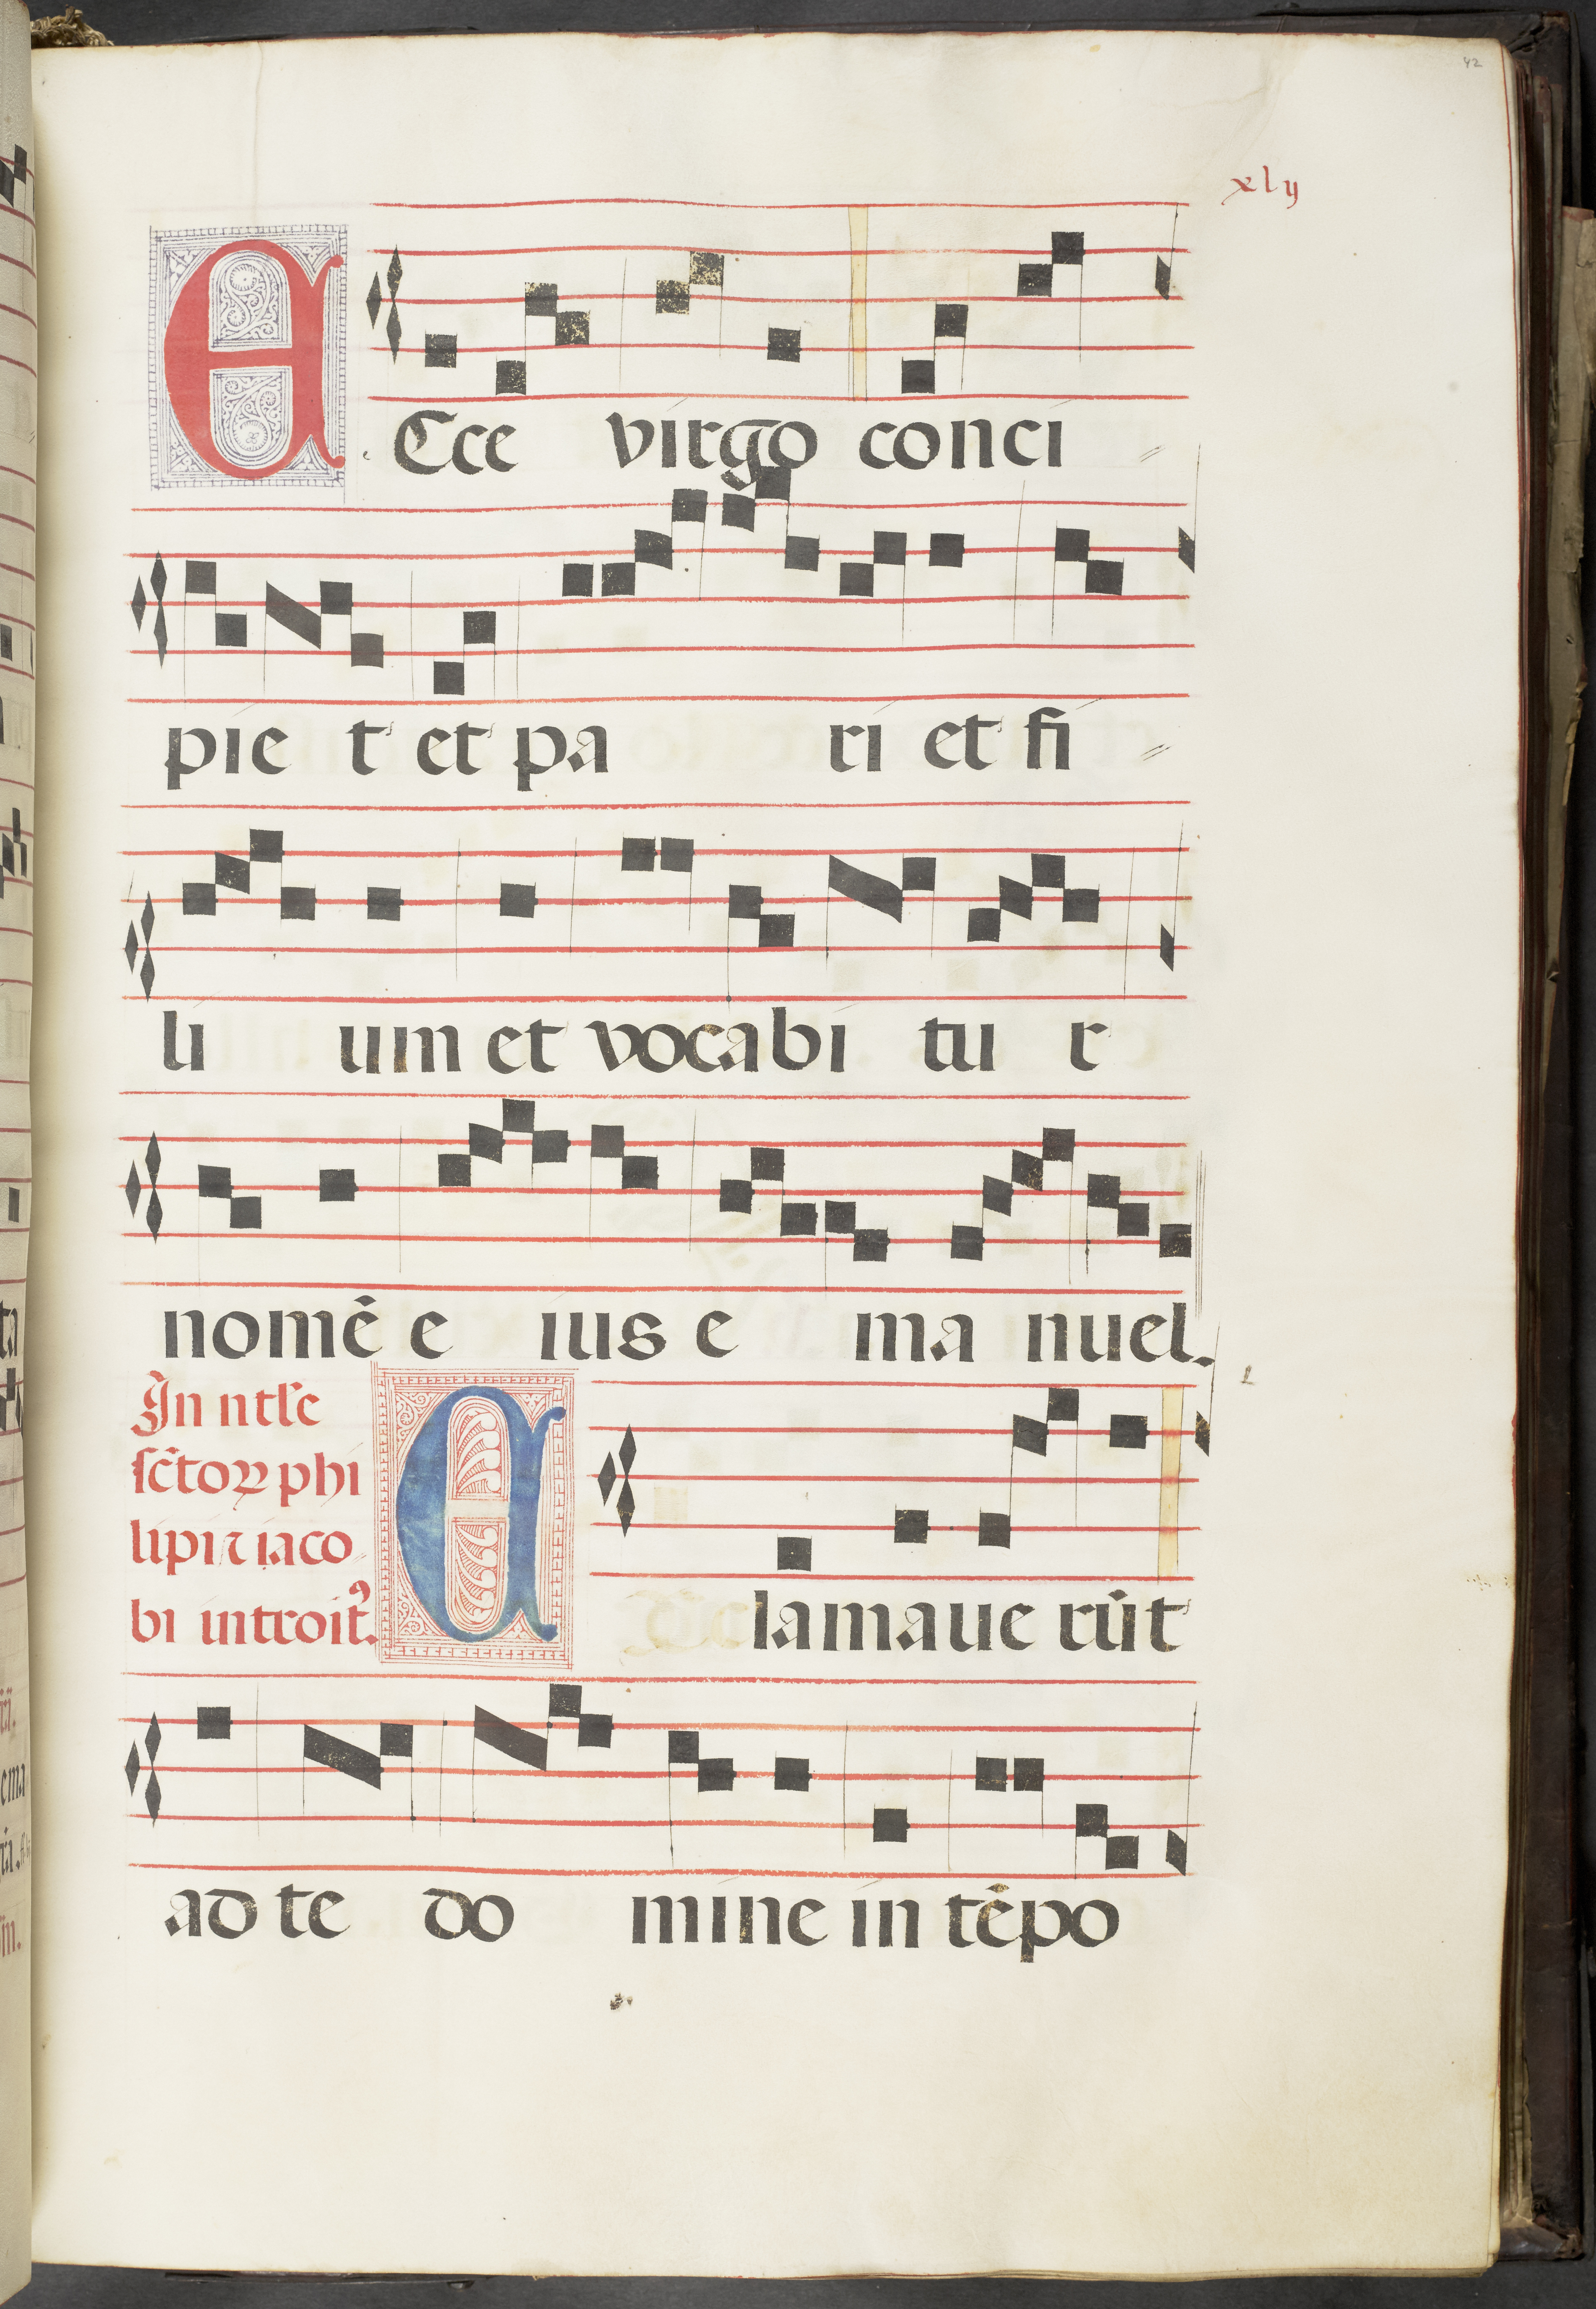 42
xlij
E Ecce virgo conci
pie t et pa ri et fi
li um et vocabi tu r
nomē e ius e ma nuel.
In ntłe
sc̄toꝝ phi
lipi ⁊ iaco
bi introitꝰ.
E lamaue rūt
ad te do mine in tēpo